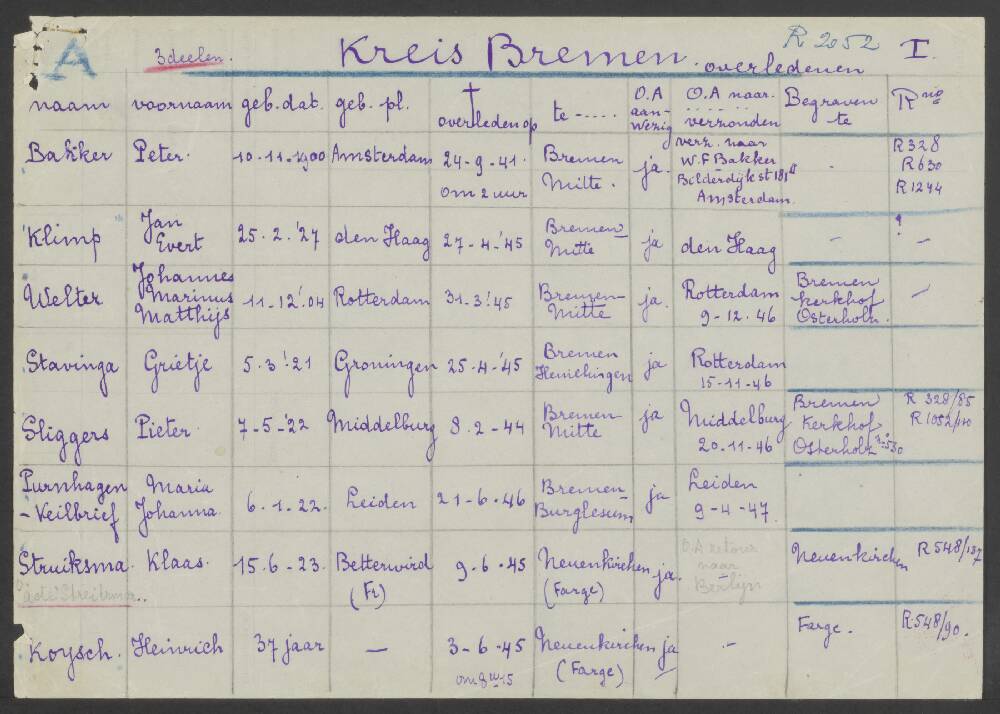 A 3 deelen. Kreis Bremen. overledenen R 2052 I.
naam voornaam geb. dat. geb. pl. † overleden op te ----- O.A aan-wezig O.A naar. verzonden Begraven te R no
Bakker Peter. 10-11-1900 Amsterdam 24-9-41. om 2 uur Bremen Mitte. ja. verz. naar W.F Bakker Bilderdijkst 181 II Amsterdam. - R 328 R 630 R 1244
Klimp Jan Evert 25.2.'27 den Haag 27-4-'45 Bremen Mitte ja den Haag - ! -
Welter Johannes Marinus Matthijs 11-12'.04 Rotterdam 31-3!45 Bremen-Mitte ja. Rotterdam 9-12.46 Bremen kerkhof Osterholz. -
Stavinga Grietje 5.3!21 Groningen 25.4-'45 Bremen ja Rotterdam 15-11-46
Sliggers Pieter. 7-5-'22 Middelburg 8.2-44 Bremen-Mitte ja Middelburg 20.11-46 Bremen Kerkhof Osterholz R 328/85
Purnhagen -Keilbrief Maria Johanna. 6.1.22. Leiden 21-6.46 Bremen-Burglesum ja Leiden 9-4-47.
Struiksma. Klaas. 15.6-23. Betterwird (Fr) 9-6.45 Neuenkirchen (Farge) ja. O.A retour naar Berlijn Neuenkirchen R 548/187
Koysch. Heinrich 37 jaar - 3-6.45 Neuenkirchen (Farge) ja - Farge. R 548/90.